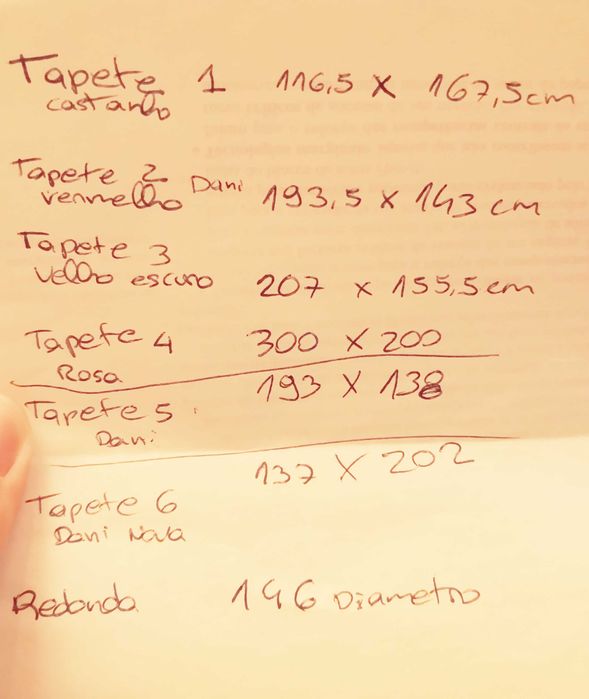 Tapete 1 116,5 X 167,5cm
castanho
Tapete 2 Dani 193,5 x 143 cm
vermelho
Tapete 3
vellho escuro 207 x 155,5cm
Tapete 4 300 X 200
Rosa
Tapete 5 193 X 138
Dani
137 X 202
Tapete 6
Dani Nova
Redonda 146 Diametro